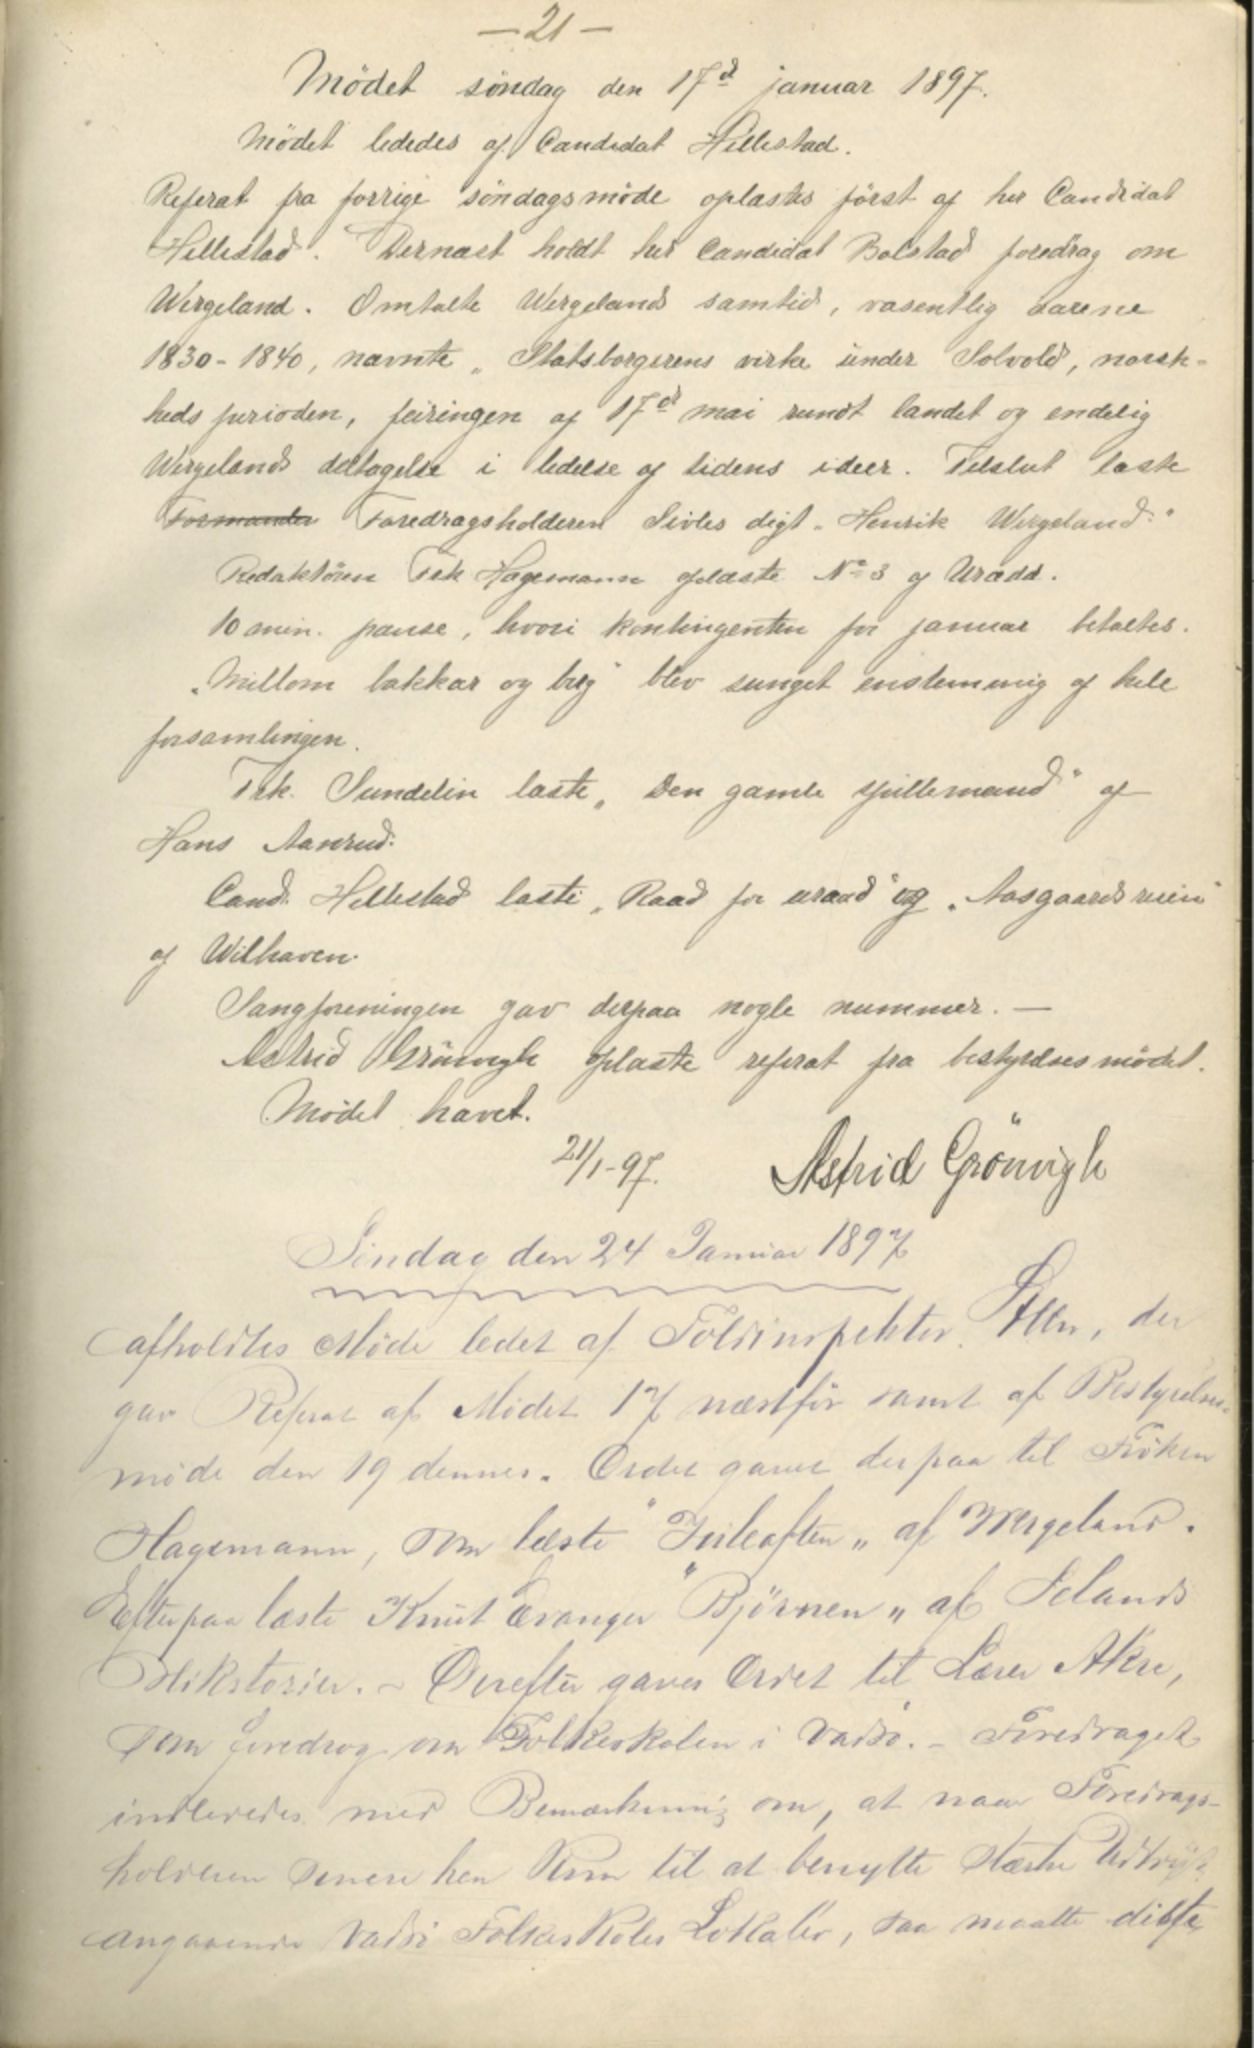 — 21 —
Mödet söndag den 17d januar 1897.
Mödet lededes af Candidat Hillestad.
Referat fra forrige söndagsmöde oplæstes först af her Candidat
Hillestad. Dernæst holdt her Candidat Bolstad foredrag om
Wergeland. Omtalte Wergelands samtid, væsentlig aarene
1830-1840, nævnte „Statsborgerens virke under Solvold, norsk-
heds perioden, feiringen af 17de mai rundt landet og endelig
Wergelands deltagelse i ledelse af tidens ideer. Tilslut læste
Formanden Foredragsholderen Sivles digt „Henrik Wergeland."
Redaktören Frk Hagemann oplæste No 3 af Urædd.
10 min. pause, hvori kontingenten for januar betaltes.
„Millom bakkar og berg" blev sunget enstemmig af hele
forsamlingen.
Frk. Sundelin læste „Den gamle spillemand" af
Hans Aanrud.
Cand. Hillestad læste „Raad for uraad" og „Aasgaardsreien"
af Wilhaven.
Sangforeningen gav derpaa nogle nummer. —
Astrid Grönvigh oplæste referat fra bestyrelsesmödet.
Mödet hævet.
21/1-97. Astrid Grönvigh
Söndag den 24 Januar 1897
afholdtes Møde ledet af Toldinspektör, der
gav Referat af Mödet 17 næstfør samt af Bestyrelses-
møde den 19 dennes. Ordet gaves derpaa til Frøken
Hagemann, som læste "Juleaften„ af Wergeland.
Efterpaa læste Knut Evanger "Bjørnen„ af Jelands
Hikstorier. - Derefter gaves Ordet til Lærer Akre,
som foredrog om Folkeskolen i Vadsö. - Foredraget
indlededes med Bemærkning om, at naar Foredrags-
holderen senere hen kom til at benytte stærke Udtryk
angaaende Vadsö Folkeskoles Lokaler, saa maatte disse